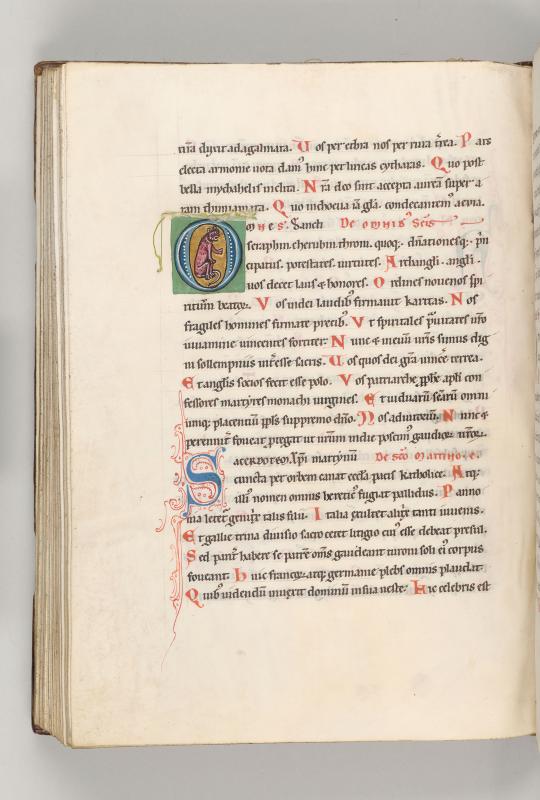 citra dixit ad agalmata. Vos per ethra nos per rura t̄rea. Pars
electa armonie uota dam̄ hinc per lineas cytharas. Quo post
bella mychahelis inclita. Nr̄a deo sint accepta auream super a
ram thimiamata. Quo in choeua iā gl̄a. condecantem᷒ aeuia.
Omnes. Sancti De omnib᷒ Scīs
seraphin. cherubin. throni. quoq᷒. dn̄ationesq᷒. p̄n
cipatus. potestates. uirtutes. Archangli. angli.
uos decet laus & honores. Ordines nouenos sp̄i
rituum beatoꝝ. Vos in dei laudib᷒ firmauit karitas. Nos
fragiles homines firmate precib᷒. Vt spiritales prauitates ur̄o
iuuamine uincentes fortiter. Nunc & in euum ur̄is simus dig
ni sollempniis int̄esse sacris. Vos quos dei gr̄a uincere terrea.
Et anglis socios fecit esse polo. Vos patriarche. ꝓph̄e. apl̄i con
fessores martyres monachi uirgines. Et uiduarū scārū omni
umq᷒ placentiū ppl̄s suppremo dn̄o. Nos adiutoriū. Nunc &
perennit̄ foueat ꝓtegat ut urūm in die poscim᷒ gaudioꝝ ur̄oꝝ.
Sacerdotem Xp̄i martinū De scō Martino. e.
cuncta per orbem canat eccl̄a pacis katholice. Atq᷒
illi᷒ nomen omnis heretic᷒ fugiat pallidus. Panno
nia letet᷒ genitrix talis filii. Italia exultet alitrix tanti iuuenis.
Et gallie trina diuisio sacro certet litigio cui᷒ esse debeat presul.
Sed parit̄ habere se patrē om̄s gaudeant turoni soli ei᷒ corpus
foueant. Huic francoꝝ. atq᷒ germanie plebs omnis plaudat.
Quib᷒ uidendū inuexit dominū in sua ueste. Hic celebris est